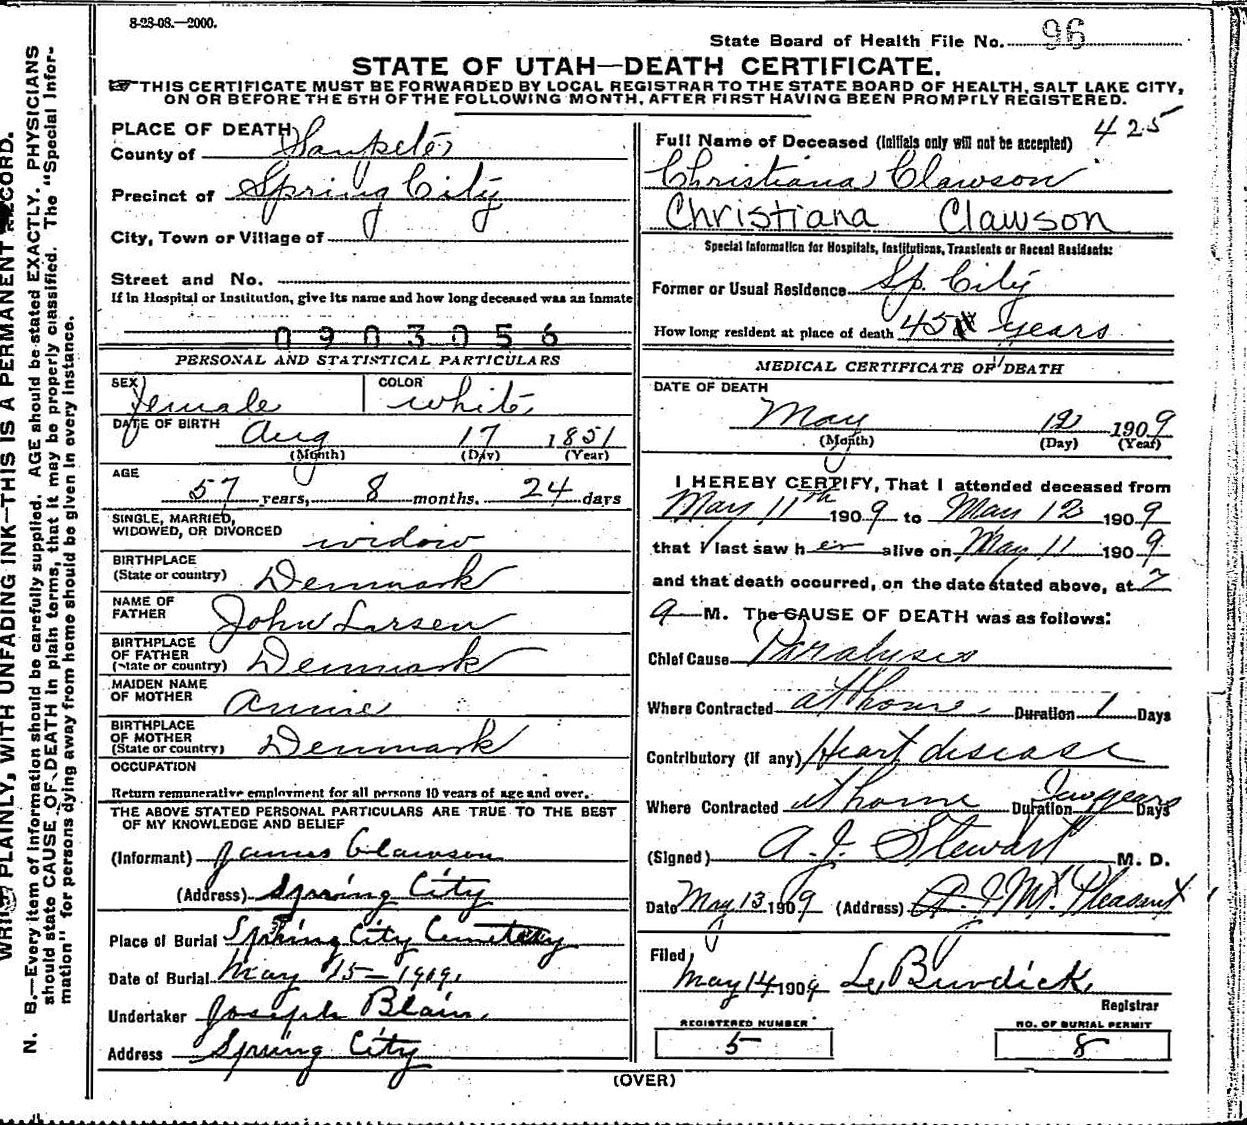 8-23-08.—2000.
State Board of Health File No. 96
STATE OF UTAH—DEATH CERTIFICATE.
THIS CERTIFICATE MUST BE FORWARDED BY LOCAL REGISTRAR TO THE STATE BOARD OF HEALTH, SALT LAKE CITY,
ON OR BEFORE THE 5TH OF THE FOLLOWING MONTH, AFTER FIRST HAVING BEEN PROMPTLY REGISTERED.
WRITE PLAINLY, WITH UNFADING INK—THIS IS A PERMANENT RECORD.
N. B.—Every item of information should be carefully supplied. AGE should be stated EXACTLY. PHYSICIANS
should state CAUSE OF DEATH in plain terms, that it may be properly classified. The "Special Infor-
mation" for persons dying away from home should be given in every instance.
PLACE OF DEATH
County of Sanpete
Precinct of Spring City
City, Town or Village of
Street and No.
If in Hospital or Institution, give its name and how long deceased was an inmate
0903056
PERSONAL AND STATISTICAL PARTICULARS
SEX Female COLOR white
DATE OF BIRTH Aug 17 1851
(Month) (Day) (Year)
AGE
57 years, 8 months. 24 days
SINGLE, MARRIED,
WIDOWED, OR DIVORCED widow
BIRTHPLACE
(State or country) Denmark
NAME OF
FATHER John Larsen
BIRTHPLACE
OF FATHER
(State or country) Denmark
MAIDEN NAME
OF MOTHER Annie
BIRTHPLACE
OF MOTHER
(State or country) Denmark
OCCUPATION
Return remunerative employment for all persons 10 years of age and over.
THE ABOVE STATED PERSONAL PARTICULARS ARE TRUE TO THE BEST
OF MY KNOWLEDGE AND BELIEF
(Informant) James Clawson
(Address) Spring City
Place of Burial Spring City Cemetery
Date of Burial May 15—1909.
Undertaker Joseph Blain.
Address Spring City
425
Full Name of Deceased (Initials only will not be accepted)
Christiana Clawson
Christiana Clawson
Special Information for Hospitals, Institutions, Transients or Recent Residents:
Former or Usual Residence Sp. City
How long resident at place of death 45 years
MEDICAL CERTIFICATE OF DEATH
DATE OF DEATH
May 12 1909
(Month) (Day) (Year)
I HEREBY CERTIFY, That I attended deceased from
May 11th 1909 to May 12 1909
that I last saw her alive on May 11 1909
and that death occurred, on the date stated above, at 7
a M. The CAUSE OF DEATH was as follows:
Chief Cause Paralysis
Where Contracted at home Duration 1 Days
Contributory (if any) Heart disease
Where Contracted at home Duration years Days
(Signed) A. J. Stewart M. D.
Date May 13 1909 (Address) Mt. Pleasant
Filed
May 14 1909 Burdick
Registrar
REGISTERED NUMBER
5
NO. OF BURIAL PERMIT
8
(OVER)